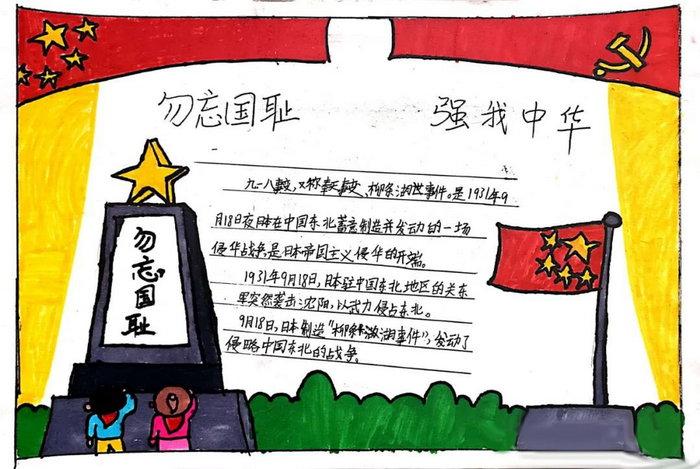 勿忘国耻 强我中华
勿忘国耻
九一八事变,又称奉天事变、柳条湖事件。是1931年9
月18日夜日本在中国东北蓄意制造并发动的一场
侵华战争,是日本帝国主义侵华的开端。
1931年9月18日,日本驻中国东北地区的关东
军突然袭击沈阳,以武力侵占东北。
9月18日,日本制造"柳条湖事件",发动了
侵略中国东北的战争。